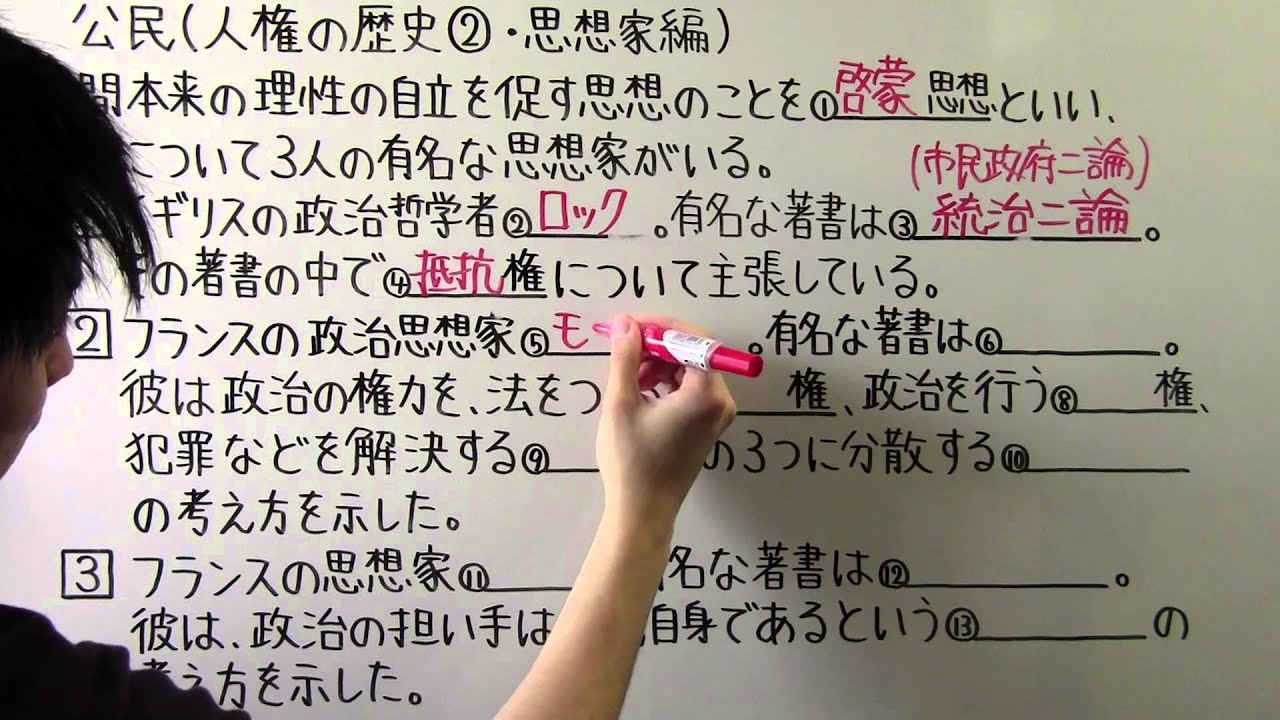 公民(人権の歴史②・思想家編)
間本来の理性の自立を促す思想のことを①啓蒙思想といい、
について3人の有名な思想家がいる。
(市民政府二論)
ギリスの政治哲学者②ロック。有名な著書は③統治二論。
の著書の中で④抵抗権について主張している。
2 フランスの政治思想家⑤モ 。有名な著書は⑥ 。
彼は政治の権力を、法をつ 権、政治を行う⑧ 権、
犯罪などを解決する⑨ の3つに分散する⑩
の考え方を示した。
3 フランスの思想家⑪ 名な著書は⑫ 。
彼は、政治の担い手は 自身であるという⑬ の
考え方を示した。